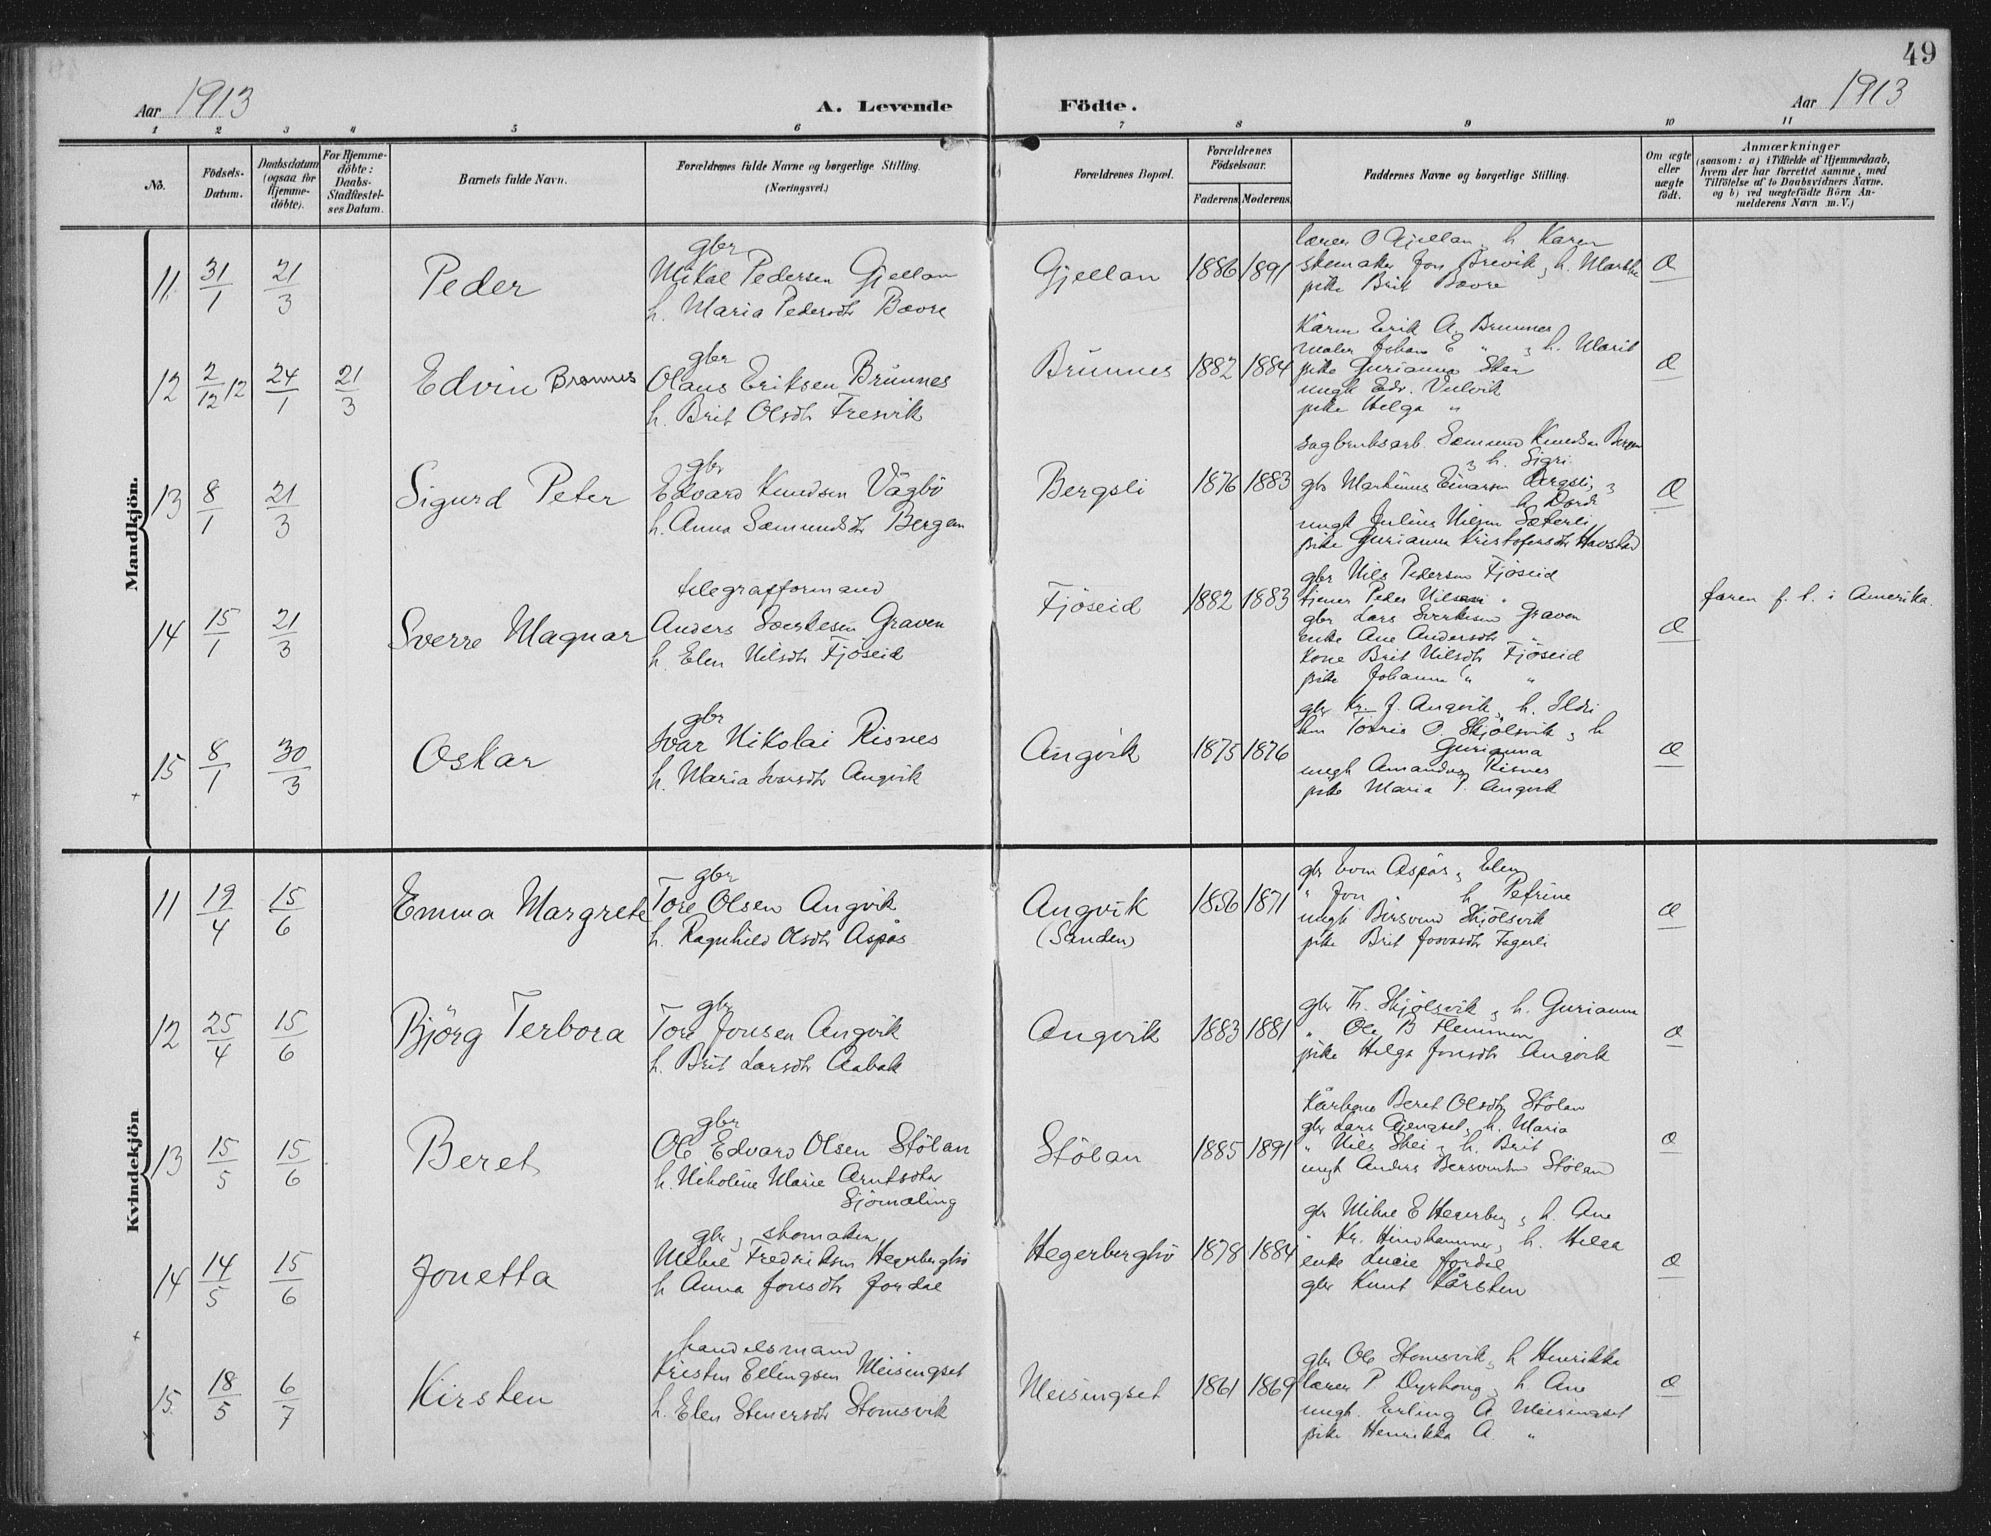 49
Aar 1913
A. Levende Födte.
Aar 1913
1 2 3 4 5 6 7 8 9 10 11
No.
Födsels-Datum.
Daabsdatum (ogsaa for Hjemmedöbte).
For Hjemmedöbte: Daabs-Stadfæstelses Datum.
Barnets fulde Navn.
Forældrenes fulde Navne og borgerlige Stilling. (Næringsvei.)
Forældrenes Bopæl.
Forældrenes Födselsaar.
Faderens Moderens
Faddernes Navne og borgerlige Stilling.
Om ægte eller uægte födt.
Anmærkninger
(saasom: a) i Tilfælde af Hjemmedaab, hvem der har forrettet samme, med Tilföielse af to Daabsvidners Navne. og b) ved uægtefödte Börn Anmelderens Navn m. V.)
Mandkjön.
11 31/1 21/3 Peder
gbr
Mikal Pedersen Gjellan
h. Maria Pedersdtr Bævre
Gjellan 1886 1891
lærer O Gjellan, h. Karen
skomaker Jon Brevik, h. Marit
pike Brit Bævre
Æ
12 2/12 12 24/1 21/3 Edvin Brønnes
gbr
Olaus Eriksen Brünnes
h. Brit Olsdtr Tresvik
Brünnes 1882 1884
Kårm Erik A. Brünnes
maler Johan E " h. Marit
pike Gurianna
ungk Edv. Vulvik
pike Helga "
Æ
13 8/1 21/3 Sigurd Peter
gbr
Edvard Knudsen Vågbö
h. Anna Sæmundsdtr Bergem
Bergsli 1876 1883
sagbruksarb. Sæmund Knudsen Bergem
& h. Sigri
gbr Martinus Einarsen Bergsli &
h Dordi
ungk Julius Nilsen Sæterli
pike Gurianna Kristofersdtr Havstad
Æ
14 15/1 21/3 Sverre Magnar
telegrafformand
Anders Sverkesen Graven
h. Elen Nilsdtr Fjöseid
Fjöseid 1882 1883
gbr Nils Pedersen Fjöseid
tjener Peder Nilsen "
gbr Lars Sverkesen Graven
enke Ane Andersdtr "
Kone Brit Nilsdtr Fjöseid
pike Johanna " "
Æ
faren f. t. i Amerika.
15 8/1 30/3 Oskar
gbr
Ivar Nikolai Risnes
h. Maria Ivarsdtr Angvik
Angvik 1875 1876
gbr Kr. J. Angvik, h. Ildri
Torris O. Skjölsvik & h
Gurianna
ungk Amandus Risnes
pike Maria P. Angvik
Æ
Kvindekjön
11 19/4 15/6 Emma Margrete
gbr
Tore Olsen Angvik
h. Ragnhild Olsdtr Aspås
Angvik
(Sanden)
1856 1871
gbr Even Aspås & Elen
" Jon " h Petrine
ungk Bersvend Skjölsvik
pike Brit Fagerli
Æ
12 25/4 15/6 Björg Terbora
gbr
Tore Jonsen Angvik
h. Brit Larsdtr Aabak
Angvik 1883 1881
gbr Th. Skjölsvik & h. Gurianna
" Ole B Flemmen
pike Helga Jonsdtr Angvik
Æ
13 15/5 15/6 Beret
gbr
Ole Edvard Olsen Stölan
h. Nikoline Marie Arntsdtr
Sjömæling
Stölan 1885 1891
Kårkone Beret Olsdtr Stölan
gbr Lars Gjengset, h. Maria
" Nils Skei & h. Brit
ungk Anders Bersvendsen Stölan
Æ
14 14/5 15/6 Jonetta
gbr & skomaker
Mikal Fredriksen Hegerbergbö
h Anna Jonsdtr Jordal
Hegerbergbö 1878 1884
gbr Mikal E Hegerberg & h. Ane
" Kr. Hindhammer, h. Helga
enke Lucie Jordal
gbr Knut Kårsten
Æ
15 18/5 6/7 Kirsten
handelsmand
Kristen Ellingsen Meisingset
h. Elen Stenersdtr Stomsvik
Meisingset 1861 1869
gbr Ole Stomsvik, h Henrikka
lærer P Dyrhaug & h. Ane
ungk. Erling A. Meisingset
pike Henrikka A. "
Æ